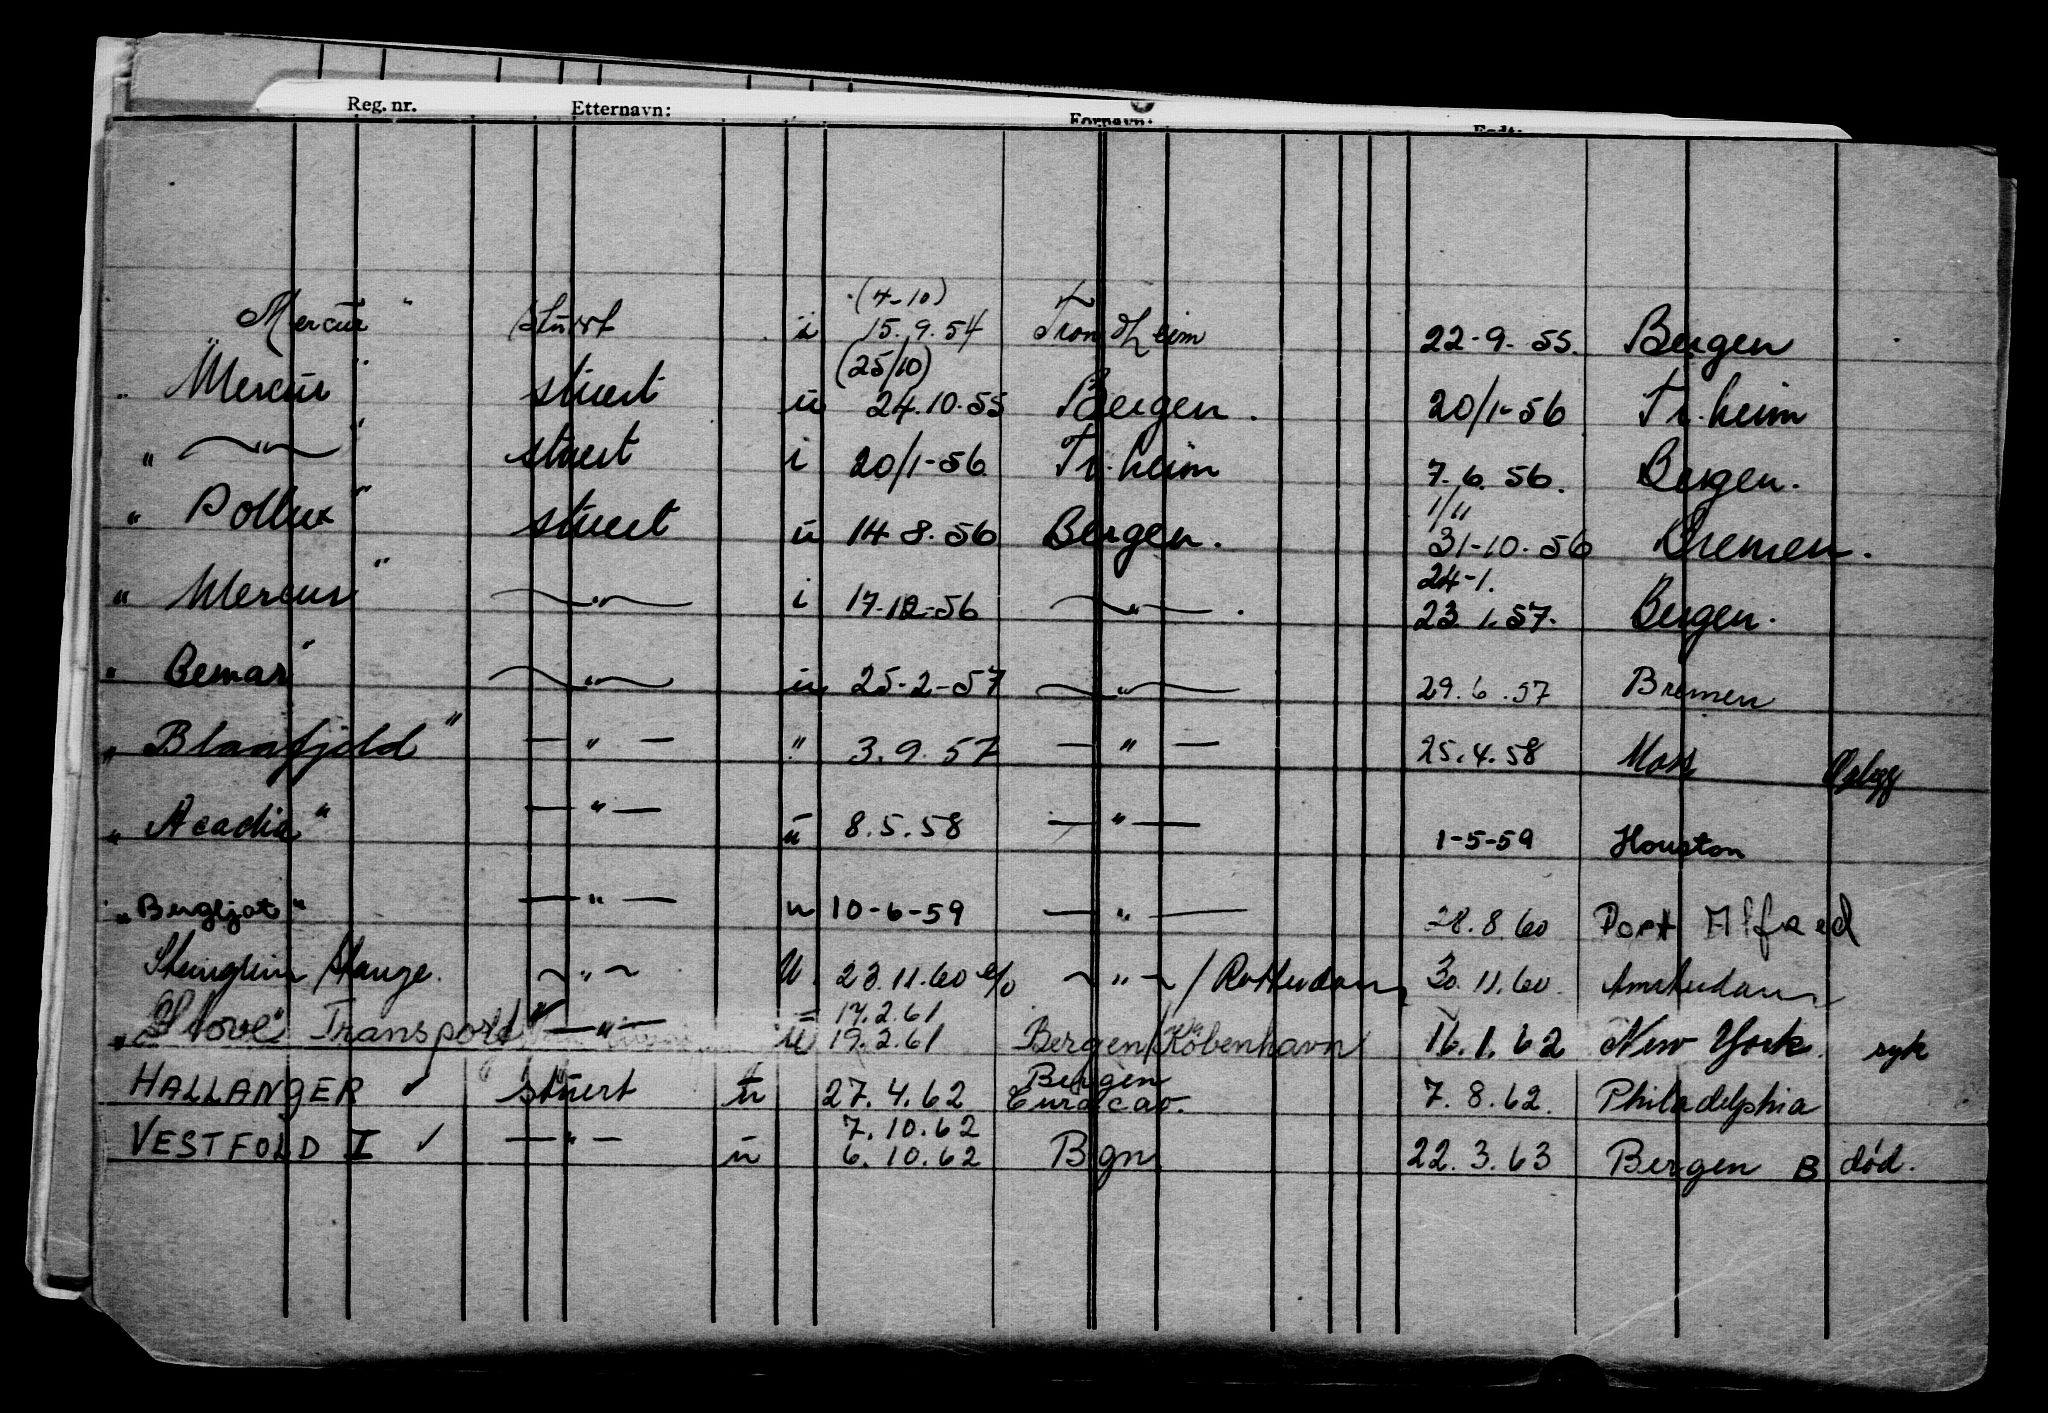 Reg. nr. Etternavn: Fornavn: Født:
(4-10)
Mercur" stuert i 15.9.54 Trondheim 22-9-55. Bergen
(25/10)
"Mercur" stuert u 24.10.55 Bergen. 20/1-56 Tr.heim
" —"— " stuert i 20/1-56 Tr.heim 7.6.56. Bergen.
1/11
"Pollux" stuert u 14-8-56 Bergen. 31-10-56 Bremen.
24-1.
"Mercur" —"— i 17-12-56 —"— . 23.1.57. Bergen.
"Bemar" —"— u 25-2-57 —"— 29.6.57 Bremen
"Blaafjeld" —"— " 3.9.57 —"— 25.4.58 Moss Oplegg
"Acadia" —"— u 8.5.58 —"— 1-5-59 Houston
"Bergljot" —"— u 10-6-59 —"— 28.8.60 Port Alfred
Stange. ~"~ u. 23.11.60 ~"~ / Rotterdam 30.11.60. Amsterdam
17.2.61
"Stove Transport" —"— u 19.2.61 Bergen/København 16.1.62 New York. syk
Bergen
HALLANGER ✓ stuert u 27.4.62 Curacao. 7.8.62. Philadelphia
7.10.62
VESTFOLD I ✓ —"— u 6.10.62 Bgn 22.3.63 Bergen B død.